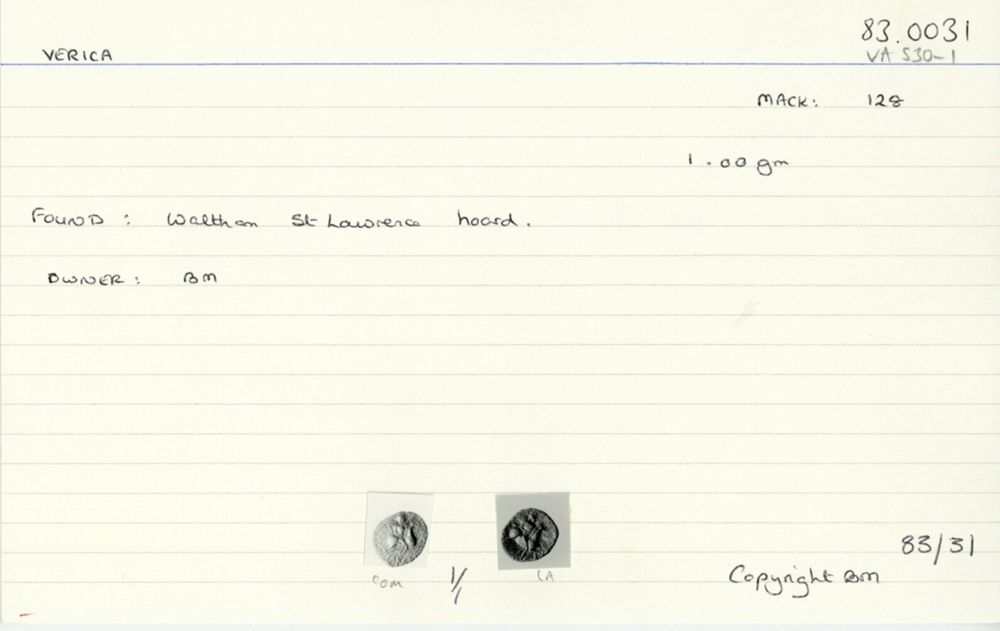 83.0031
VERICA
VA 530-1
MACK: 128
1.00 gm
FOUND: Waltham St Lawrence hoard.
OWNER: BM
83/31
COM 1/1 CA
Copyright BM